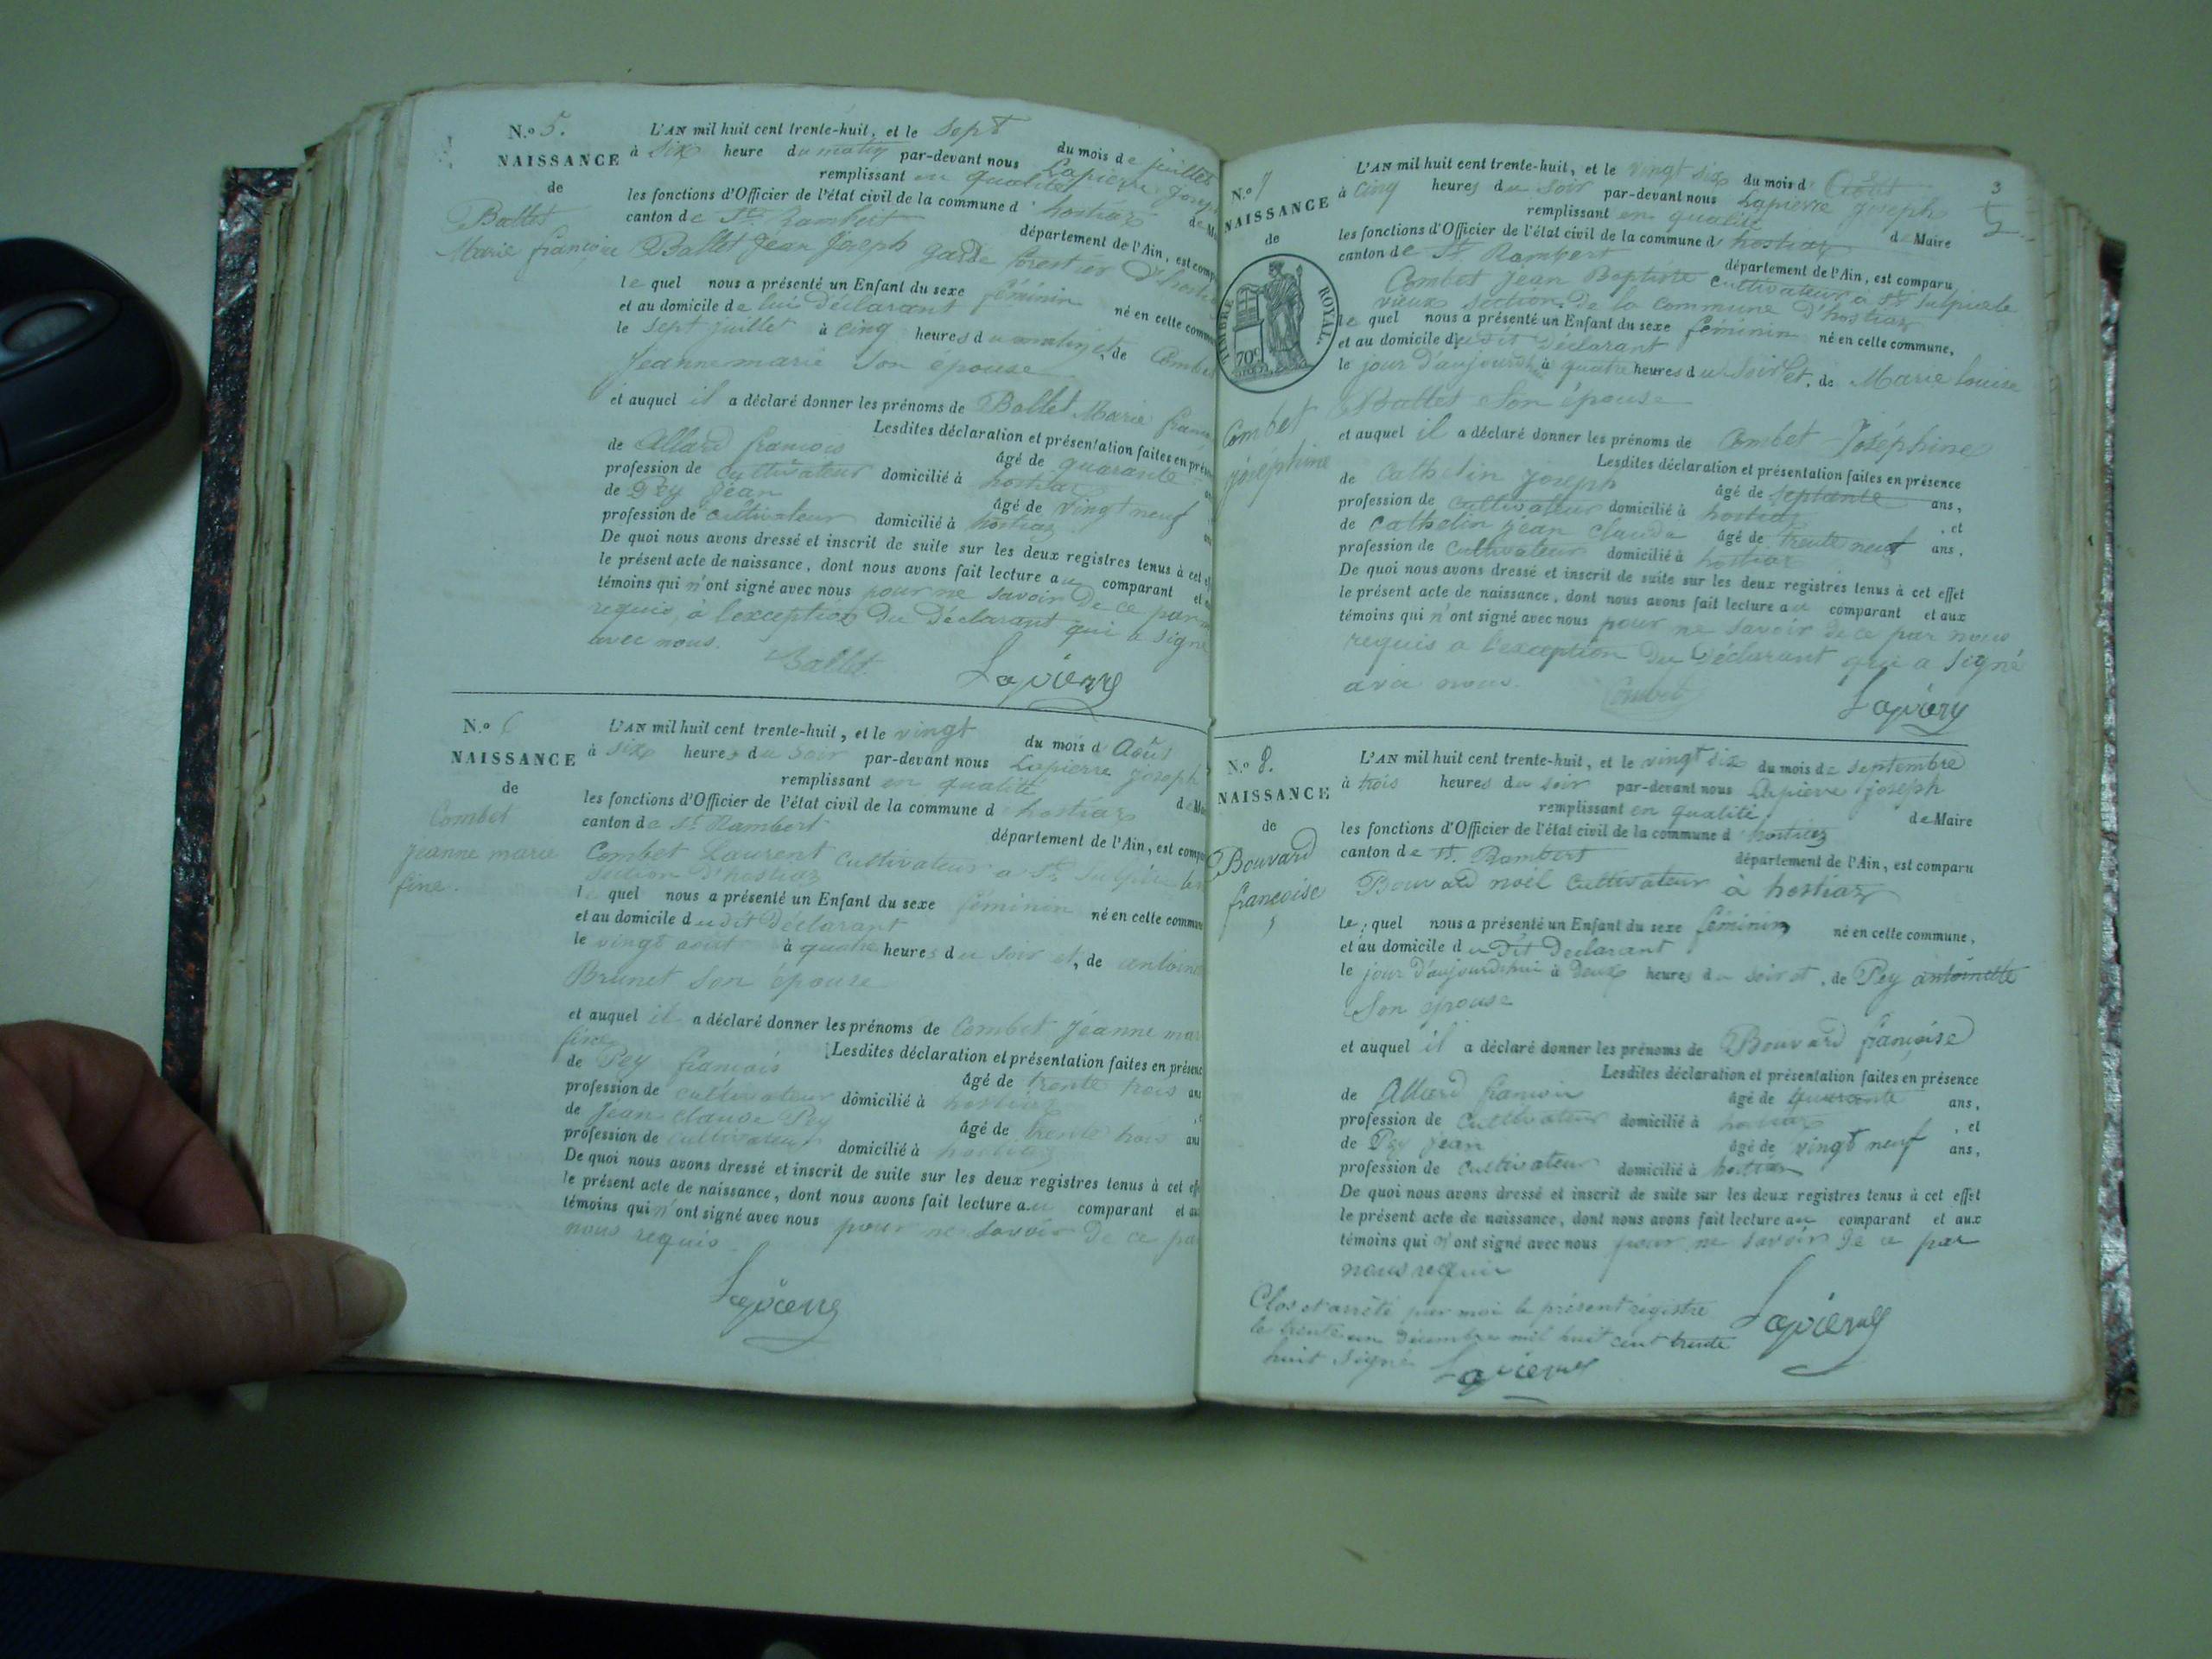 N.º 5.
NAISSANCE
de
Ballet
Marie françoise
L'AN mil huit cent trente-huit, et le sept du mois de juillet
à six heure du matin par-devant nous Lapierre Joseph
remplissant en qualité de
les fonctions d'Officier de l'état civil de la commune d'hostiaz
canton de St. Rambert département de l'Ain, est
Ballet Jean Joseph garde forestier
lequel nous a présenté un Enfant du sexe féminin né en cette
et au domicile de lui déclarant
le sept juillet à cinq heures du matin et, de
Jeanne marie son épouse
et auquel il a déclaré donner les prénoms de Ballet Marie
Lesdites déclaration et présentation faites en
de Allard françois âgé de quarante
profession de cultivateur domicilié à hostiaz
de Pey Jean âgé de vingt neuf
profession de cultivateur domicilié à hostiaz
De quoi nous avons dressé et inscrit de suite sur les deux registres tenus à cet
le présent acte de naissance, dont nous avons fait lecture au comparant et
témoins qui n'ont signé avec nous pour ne savoir de ce par
requis, à l'exception du déclarant qui a signé
avec nous.
Ballet Lapierre
N.º 6
NAISSANCE
de
Combet
Jeanne marie
fine.
L'AN mil huit cent trente-huit, et le vingt du mois d'Août
à six heures du soir par-devant nous Lapierre Joseph
remplissant en qualité de
les fonctions d'Officier de l'état civil de la commune d'hostiaz
canton de St Rambert département de l'Ain, est
Combet Laurent cultivateur a St Sulpice
section d'hostiaz
lequel nous a présenté un Enfant du sexe féminin né en cette
et au domicile dudit déclarant
le vingt août à quatre heures du soir et, de
Brunet son épouse
et auquel il a déclaré donner les prénoms de Combet Jeanne
fine
Lesdites déclaration et présentation faites en
de Pey françois âgé de trente trois ans
profession de cultivateur domicilié à hostiaz
de Jean Claude Pey âgé de trente trois ans
profession de cultivateur domicilié à hostiaz
De quoi nous avons dressé et inscrit de suite sur les deux registres tenus à cet
le présent acte de naissance, dont nous avons fait lecture au comparant et
témoins qui n'ont signé avec nous pour ne savoir de ce
nous requis.
Lapierre
3
N.º 7
NAISSANCE
de
TIMBRE ROYAL
70c
Combet
joséphine
L'AN mil huit cent trente-huit, et le vingt six du mois d'Août
à cinq heures du soir par-devant nous Lapierre Joseph
remplissant en qualité de Maire
les fonctions d'Officier de l'état civil de la commune d'hostiaz
canton de St. Rambert département de l'Ain, est comparu
Combet Jean Baptiste cultivateur a St Sulpice le
vieux section de la commune d'hostiaz
le quel nous a présenté un Enfant du sexe féminin né en cette commune,
et au domicile dudit déclarant
le jour d'aujourdhui à quatre heures du soir et, de Marie louise
Ballet son épouse
et auquel il a déclaré donner les prénoms de Combet Joséphine
Lesdites déclaration et présentation faites en présence
de Cathelin Joseph âgé de septante ans,
profession de cultivateur domicilié à hostiaz, et
de Cathelin Jean Claude âgé de trente neuf ans,
profession de cultivateur domicilié à hostiaz
De quoi nous avons dressé et inscrit de suite sur les deux registres tenus à cet effet
le présent acte de naissance, dont nous avons fait lecture au comparant et aux
témoins qui n'ont signé avec nous pour ne savoir de ce par nous
requis a l'exception du Déclarant qui a signé
avec nous.
Combet Lapierre
N.º 8.
NAISSANCE
de
Bouvard
françoise
L'AN mil huit cent trente-huit, et le vingt six du mois de septembre
à trois heures du soir par-devant nous Lapierre joseph
remplissant en qualité de Maire
les fonctions d'Officier de l'état civil de la commune d'hostiaz
canton de St. Rambert département de l'Ain, est comparu
Bouvard noël cultivateur à hostiaz
Le quel nous a présenté un Enfant du sexe féminin né en cette commune,
et au domicile du Dit Déclarant
le jour d'aujourdhui à deux heures du soir et, de Pey antoinette
Son épouse
et auquel il a déclaré donner les prénoms de Bouvard françoise
Lesdites déclaration et présentation faites en présence
de Allard francois âgé de quarante ans,
profession de cultivateur domicilié à hostiaz, et
de Pey jean âgé de vingt neuf ans,
profession de cultivateur domicilié à hostiaz
De quoi nous avons dressé et inscrit de suite sur les deux registres tenus à cet effet
le présent acte de naissance, dont nous avons fait lecture au comparant et aux
témoins qui n'ont signé avec nous pour ne savoir de ce par
nous requis
Lapierre
Clos et arrêté par moi le présent régistre
le trente un décembre mil huit cent trente
huit signé Lapierre